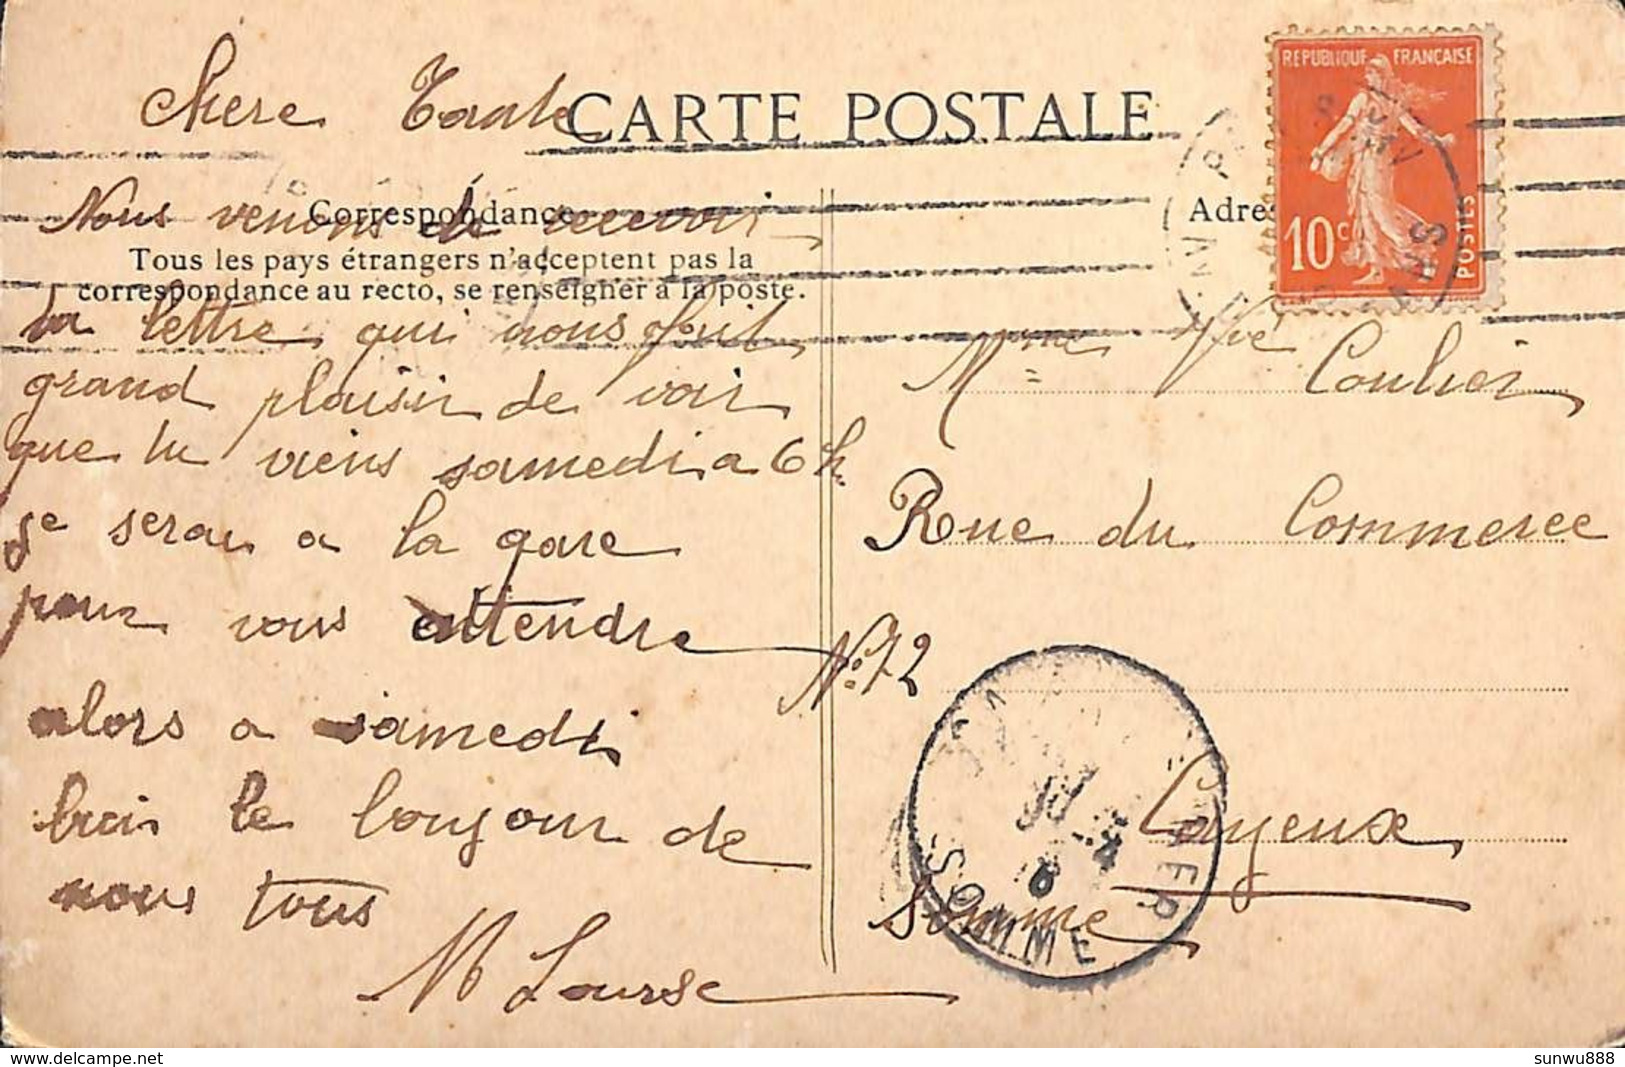 chere Tante
CARTE POSTALE
Nous venons de recevoir
Correspondance
Tous les pays étrangers n'acceptent pas la
correspondance au recto, se renseigner à la poste.
ta lettre qui nous fait
grand plaisir de voir
que tu viens samedi a 6 h
je serai a la gare
pour vous attendre
alors a samedi
bien le bonjour de
nous tous
M Louise
REPUBLIQUE FRANÇAISE
10c
POSTES
Adres
Mme Vve Coulier
Rue du Commerce
No 72
Cayeux
Somme
SOMME
delcampe.net
sunwu888